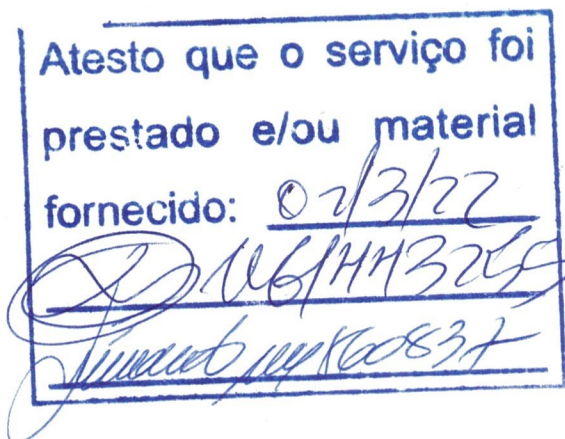 Atesto que o serviço foi
prestado e/ou material
fornecido: 02/3/22
860837